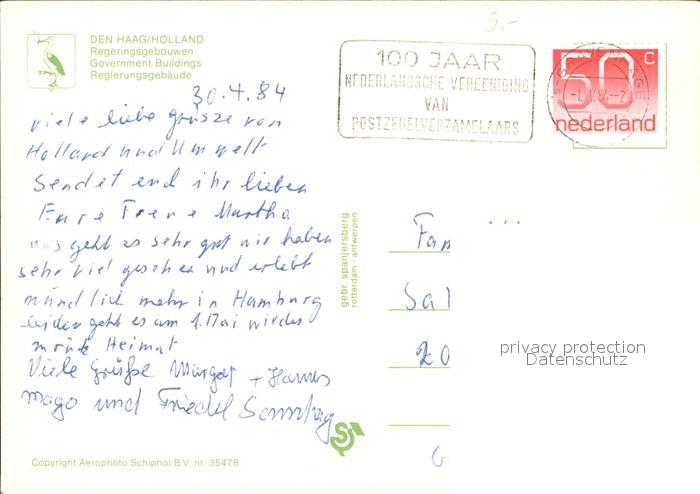 DEN HAAG/HOLLAND
Regeringsgebouwen
Government Buildings
Regierungsgebäude
5.-
100 JAAR
NEDERLANDSCHE VEREENIGING
VAN
POSTZEGELVERZAMELAARS
50 c
nederland
30.4.84
viele liebe grüsze von
Holland und Umwelt
Sendet end ihr lieben
Eure Trene Martha
uns geht es sehr gut wir haben
sehr viel gesehen und erlebt
mündlich mehr in Hamburg
leider geht es am 1. Mai wieder
Heimat
Viele Grüße Margot + Hannes
und Friedel Sonntag
gebr. spanjersberg
rotterdam - antwerpen
Fam
Sal
20
G
privacy protection
Datenschutz
Copyright Aerophoto Schiphol B.V. nr. 35478